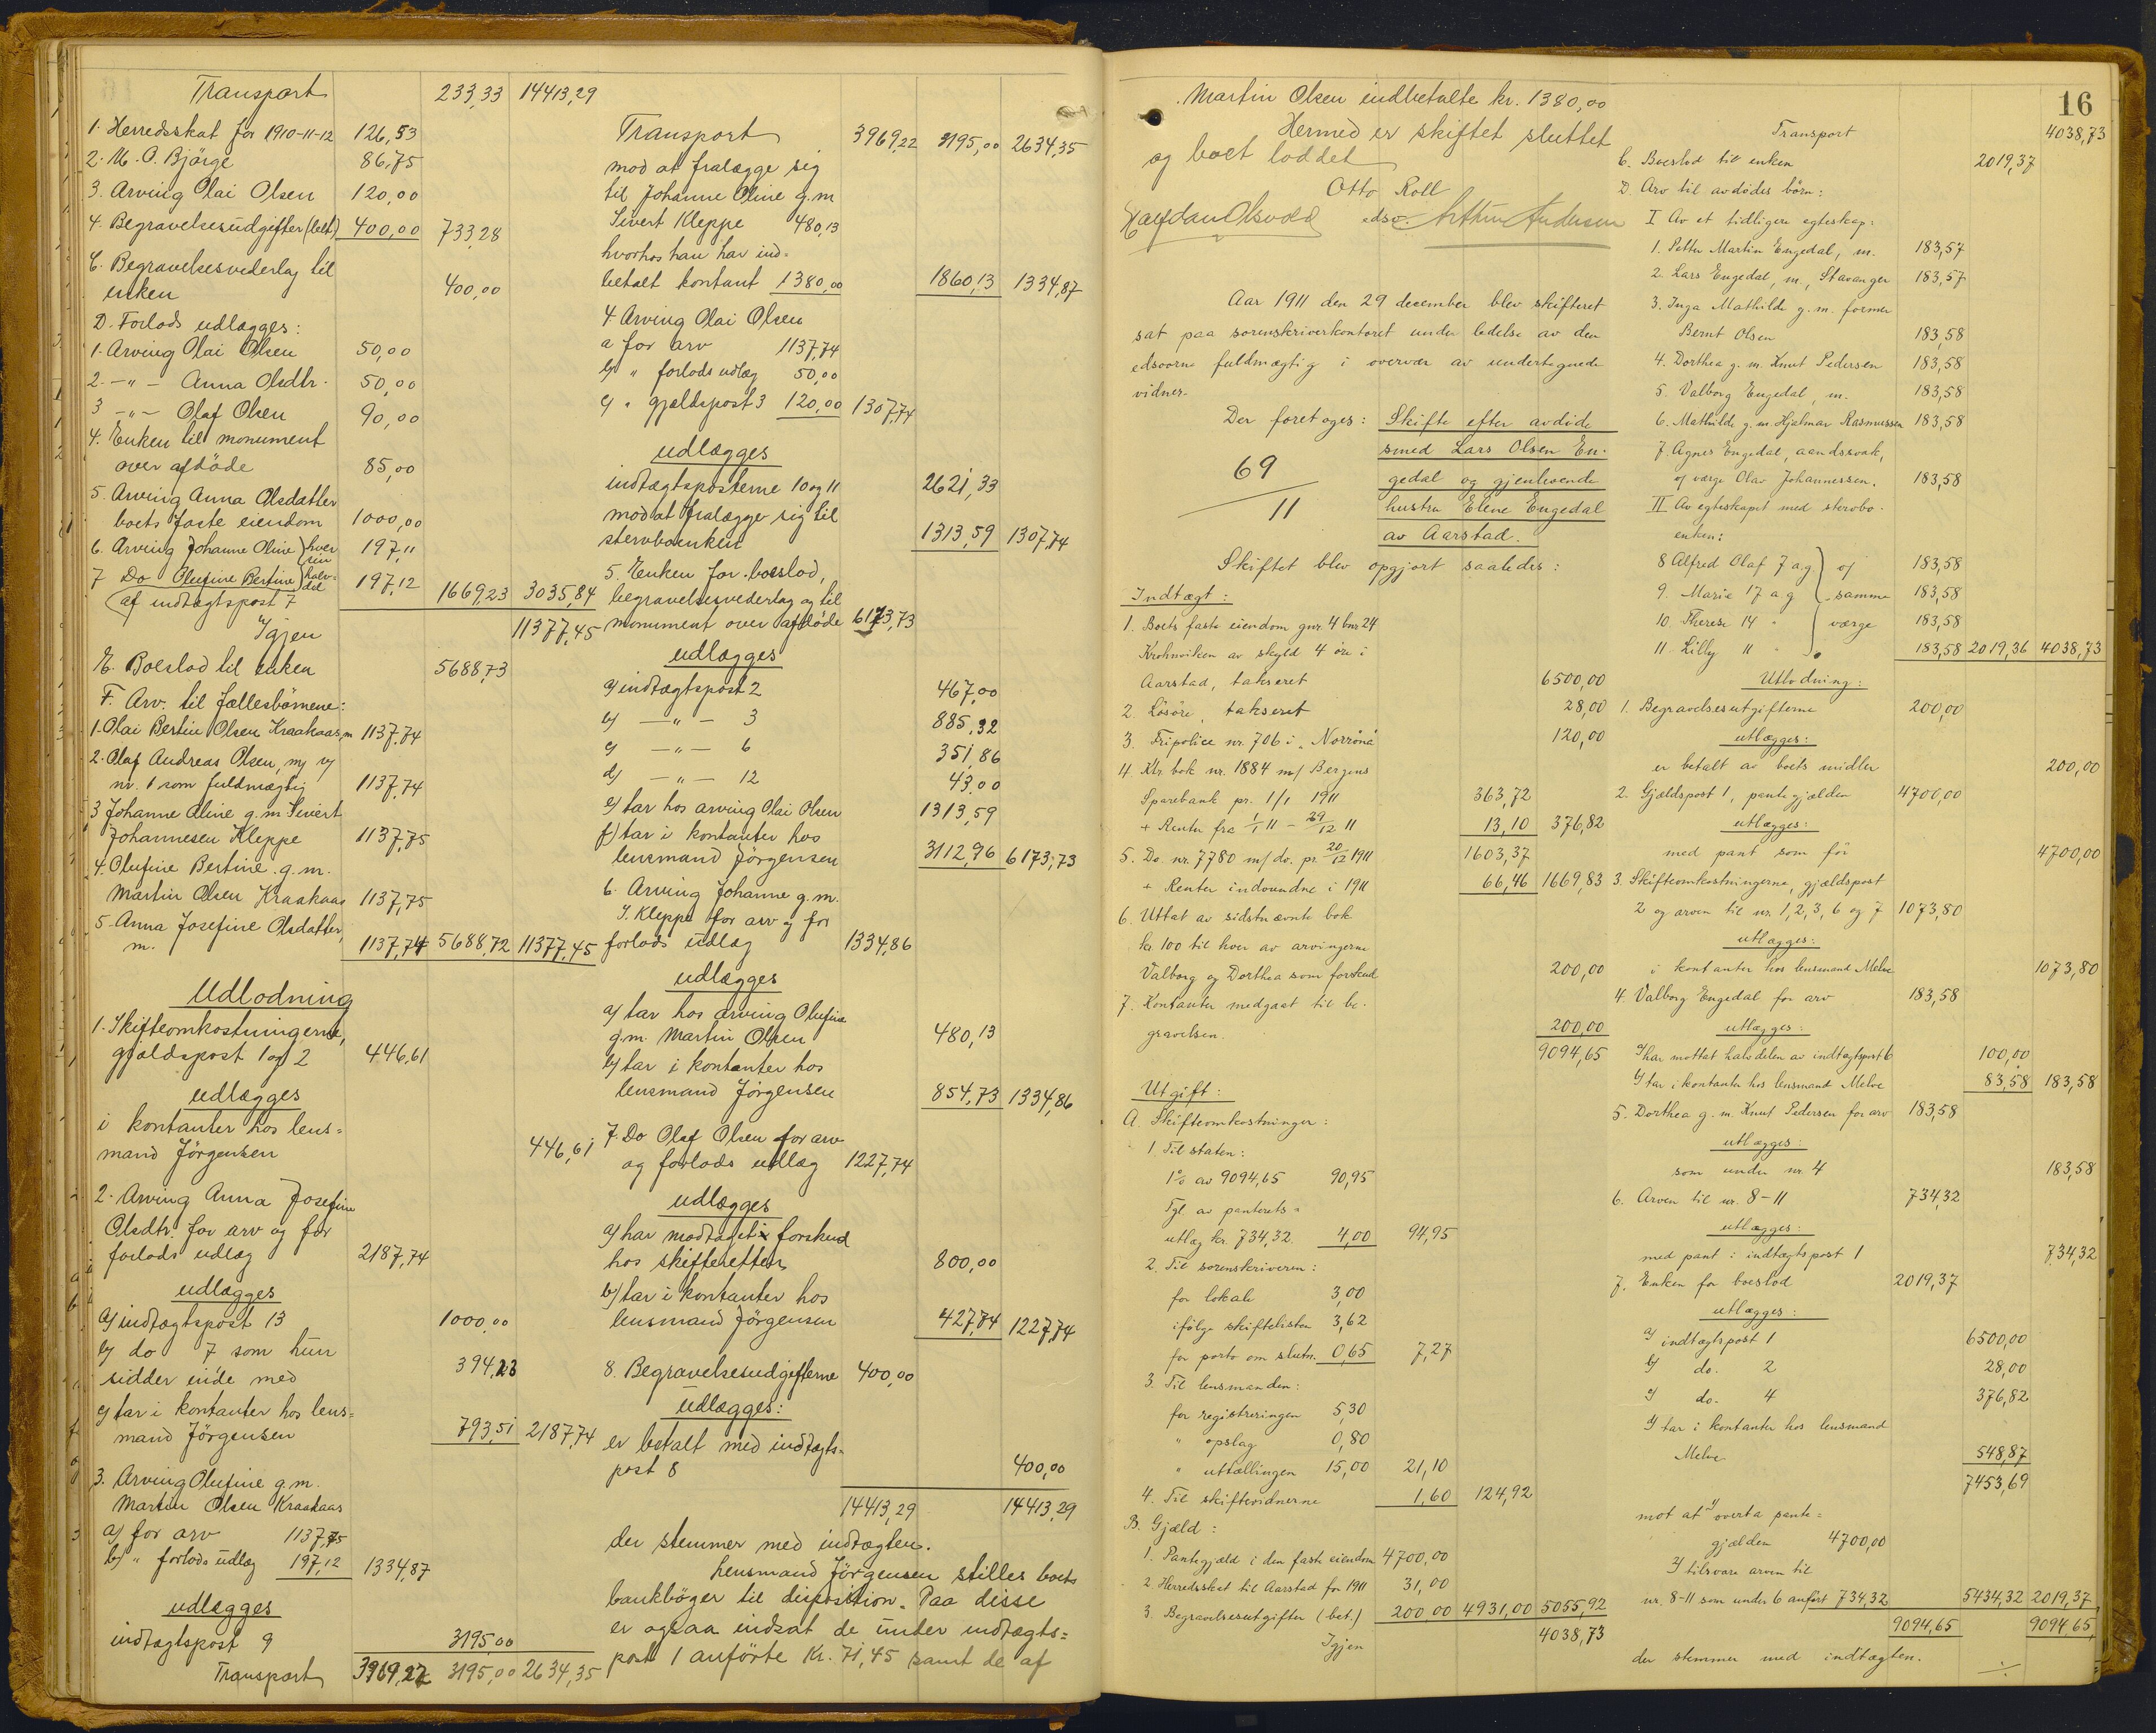 Transport 233,33 14413,29
1. Herredsskat for 1910-11-12 126,53
2. M. O. Bjørge 86,75
3. Arving Olai Olsen 120,00
4. Begravelsesudgifter (bet.) 400,00 733,28
C. Begravelsesvederlag til
enken 400,00
D. Forlods udlægges:
1. Arving Olai Olsen 50,00
2. -"- Anna Olsdtr. 50,00
3 -"- Olaf Olsen 90,00
4. Enken til monument
over afdøde 85,00
5. Arving Anna Olsdatter
boets faste eiendom 1000,00
6. Arving Johanne Oline } hver 197,11
sin
7 Do Olufine Bertine } halv- 197,12 1669,23 3035,84
del
af indtægtspost 7
Igjen 11377,45
E. Boeslod til enken 5688,73
F. Arv. til fællesbørnene:
1. Olai Bertin Olsen Kraakaas, m 1137,74
2. Olaf Andreas Olsen, m, v/
nr. 1 som fuldmægtig 1137,74
3 Johanne Oline g.m. Sivert
Johannesen Kleppe 1137,75
4. Olufine Bertine g.m.
Martin Olsen Kraakaas 1137,75
5. Anna Josefine Olsdatter,
m. 1137,74 5688,72 11377,45
Udlodning
1. Skifteomkostningerne,
gjældspost 1 og 2 446,61
udlægges
i kontanter hos lens=
mand Jørgensen 446,61
2. Arving Anna Josefine
Olsdtr. for arv og for
forlods udlæg 2187,74
udlægges
a) indtægtspost 13 1000,00
b) do 7 som hun
sidder inde med 394,23
c) tar i kontanter hos lens=
mand Jørgensen 793,51 2187,74
3. Arving Olufine g.m.
Martin Olsen Kraakaas
a) for arv 1137,75
b) " forlods udlæg 197,12 1334,87
udlægges
indtægtspost 9 3195,00
Transport 3969,22 3195,00 2634,35
Transport 3969,22 3195,00 2634,35
mod at fralægge sig
til Johanne Oline g.m
Sivert Kleppe 480,13
hvorhos han har ind=
betalt kontant 1380,00 1860,13 1334,87
4. Arving Olai Olsen
a for arv 1137,74
b) " forlods udlæg 50,00
c) " gjældspost 3 120,00 1307,74
udlægges
indtægtsposterne 10 og 11 2621,33
mod at fralægge sig til
stervboenken 1313,59 1307,74
5. Enken for boeslod,
begravelsesvederlag og til
monument over afdøde 6173,73
udlægges
a) indtægtspost 2 467,00
b) -"- 3 885,32
c) -"- 6 351,86
d) -"- 12 43,00
e) tar hos arving Olai Olsen 1313,59
f) tar i kontanter hos
lensmand Jørgensen 3112,96 6173,73
6. Arving Johanne g.m.
S. Kleppe for arv og for
forlods udlæg 1334,86
udlægges
a) tar hos arving Olufine
g.m. Martin Olsen 480,13
b) tar i kontanter hos
lensmand Jørgensen 854,73 1334,86
7. Do Olaf Olsen for arv
og forlods udlæg 1227,74
udlægges
a) har modtaget i forskud
hos skifteretten 800,00
b) tar i kontanter hos
lensmand Jørgensen 427,74 1227,74
8. Begravelsesudgifterne 400,00
udlægges:
er betalt med indtægts=
post 8 400,00
14413,29 14413,29
der stemmer med indtægten.
Lensmand Jørgensen stilles boets
bankbøger til disposition. Paa disse
er ogsaa indsat de under indtægts=
post 1 anførte Kr. 71,45 samt de af
Martin Olsen indbetalte kr. 1380,00
Hermed er skiftet sluttet
og boet loddet
Otto Roll
Halfdan Olsvold edsv. Arthur Andersen
Aar 1911 den 29 december blev skifteret
sat paa sorenskriverkontoret under ledelse av den
edsvorne fuldmægtig i overvær av undertegnede
vidner.
Der foretoges: Skifte efter avdøde
smed Lars Olsen En-
69 gedal og gjenlevende
11 hustru Elene Engedal
av Aarstad.
Skiftet blev opgjort saaledes:
Indtægt:
1. Boets faste eiendom gnr. 4 bnr 24
Krohnviken av skyld 4 øre i
Aarstad, takseret 6500,00
2. Løsøre, takseret 28,00
3. Fripolice nr. 706 i "Norrøna" 120,00
4. Ktr. bok nr. 1884 m/ Bergens
Sparebank pr. 1/1 1911 363,72
+ Renter fra 1/1 11 - 29/12 11 13,10 376,82
5. Do. nr. 7780 m/ do. pr. 20/12 1911 1603,37
+ Renter indvundne i 1911 66,46 1669,83
6. Uttat av sidstnævnte bok
kr. 100 til hver av arvingerne
Valborg og Dorthea som forskud 200,00
7. Kontanter medgaat til be-
gravelsen. 200,00
9094,65
Utgift:
A. Skifteomkostninger:
1. Til staten:
1% av 9094,65 90,95
Tgl. av panterets-
utlæg kr. 734,32 4,00 94,95
2. Til sorenskriveren:
for lokale 3,00
ifølge skiftelisten 3,62
for porto om slutn. 0,65 7,27
3. Til lensmanden:
for registreringen 5,30
" opslag 0,80
" uttællingen 15,00 21,10
4. Til skiftevidnerne 1,60 124,92
B. Gjæld:
1. Pantegjæld i den faste eiendom 4700,00
2 Herredsskat til Aarstad for 1911 31,00
3. Begravelsesutgifter (bet.) 200 00 4931,00 5055,92
Igjen 4038,73
16
Transport 4038,73
C. Boeslod til enken 2019,37
D. Arv til avdødes børn:
I Av et tidligere egteskap:
1. Petter Martin Engedal, m. 183,57
2. Lars Engedal, m., Stavanger 183,57
3. Inga Mathilde g. m. former
Bernt Olsen 183,58
4. Dorthea g. m. Knut Pedersen 183,58
5. Valborg Engedal, m. 183,58
6. Mathilde g. m. Hjalmar Rasmussen 183,58
7. Agnes Engedal, aandssvak,
v/ værge Olav Johannessen. 183,58
II Av egteskapet med stervbo-
enken:
8 Alfred Olaf 7 a.g. } v/ 183,58
9. Marie 17 a g } samme 183,58
10. Therese 14 " } værge 183,58
11. Lilly 11 " } 183,58 2019,36 4038,73
Utlodning:
1. Begravelsesutgifterne 200,00
utlægges:
er betalt av boets midler 200,00
2. Gjældspost 1, pantegjælden 4700,00
utlægges:
med pant som før 4700,00
3. Skifteomkostningerne, gjældspost
2 og arven til nr. 1, 2, 3, 6 og 7 1073,80
utlægges:
i kontanter hos lensmand Melve 1073,80
4. Valborg Engedal for arv 183,58
utlægges:
a) har mottat halvdelen av indtægtspost 6 100,00
b) tar i kontanter hos lensmand Melve 83,58 183,58
5. Dorthea g. m. Knut Pedersen for arv 183,58
utlægges:
som under nr. 4 183,58
6. Arven til nr. 8-11 734,32
utlægges:
med pant i indtægtspost 1 734,32
7. Enken for boeslod 2019,37
utlægges:
a) indtægtspost 1 6500,00
b) do. 2 28,00
c) do. 4 376,82
d) tar i kontanter hos lensmand
Melve 548,87
7453,69
mot at a) overta pante=
gjælden 4700,00
b) tilsvare arven til
nr. 8-11 som under 6 anført 734,32 5434,32 2019,37
9094,65 9094,65
der stemmer med indtægten.